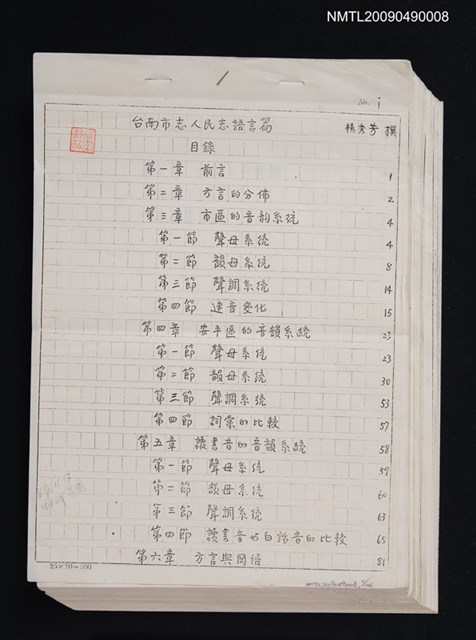 NMTL20090490008
No. i
台南市志人民志語言篇 楊秀芳 撰
目錄
第一章 前言 1
第二章 方言的分佈 2
第三章 市區的音韵系統 4
第一節 聲母系統 4
第二節 韵母系統 8
第三節 聲調系統 14
第四節 連音變化 15
第四章 安平區的音韻系統 23
第一節 聲母系統 23
第二節 韵母系統 30
第三節 聲調系統 53
第四節 詞彙的比較 57
第五章 讀書音的音韻系統 58
第一節 聲母系統 59
第二節 韻母系統 60
第三節 聲調系統 63
第四節 讀書音与白話音的比較 65
第六章 方言與國語 81